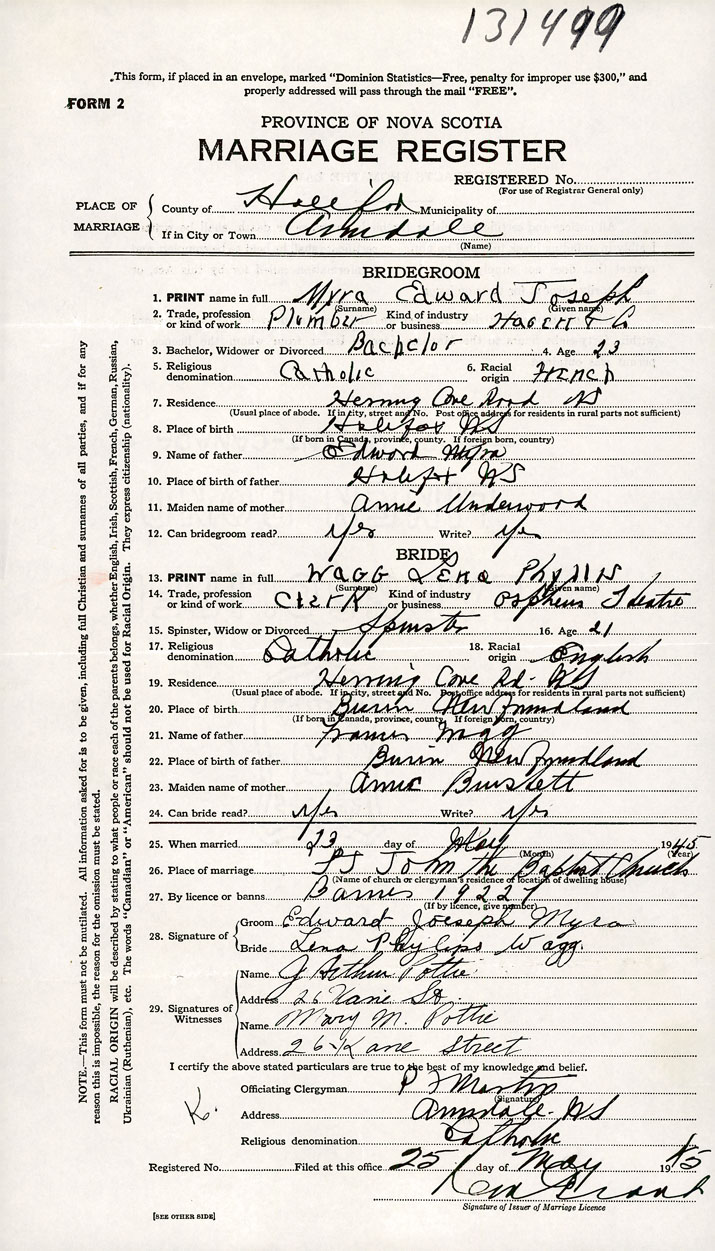 131499
„This form, if placed in an envelope, marked “Dominion Statistics—Free, penalty for improper use $300,” and
properly addressed will pass through the mail “FREE”.
FORM 2
PROVINCE OF NOVA SCOTIA
MARRIAGE REGISTER
REGISTERED No.
(For use of Registrar General only)
PLACE OF MARRIAGE
County of Halifax Municipality of
If in City or Town Armdale
(Name)
BRIDEGROOM
1. PRINT name in full Myra Edward Joseph
(Surname) (Given name)
2. Trade, profession or kind of work Plumber Kind of industry or business Hagen & Co
3. Bachelor, Widower or Divorced Bachelor 4. Age 23
5. Religious denomination Catholic 6. Racial origin French
7. Residence Herring Cove Road NS
(Usual place of abode. If in city, street and No. Post office address for residents in rural parts not sufficient)
8. Place of birth Halifax NS
(If born in Canada, province, county. If foreign born, country)
9. Name of father Edward Myra
10. Place of birth of father Halifax NS
11. Maiden name of mother Annie Underwood
12. Can bridegroom read? Yes Write? Yes
BRIDE
13. PRINT name in full Wagg Lena Phyllis
(Surname) (Given name)
14. Trade, profession or kind of work Clerk Kind of industry or business Orpheus Theatre
15. Spinster, Widow or Divorced Spinster 16. Age 21
17. Religious denomination Catholic 18. Racial origin English
19. Residence Herring Cove Rd. NS
(Usual place of abode. If in city, street and No. Post office address for residents in rural parts not sufficient)
20. Place of birth Burin Newfoundland
(If born in Canada, province, county. If foreign born, country)
21. Name of father Wagg
22. Place of birth of father Burin Newfoundland
23. Maiden name of mother Annie
24. Can bride read? Yes Write? Yes
25. When married 23 day of May 1945
(Month) (Year)
26. Place of marriage St John the Baptist Church
(Name of church or clergyman's residence or location of dwelling house)
27. By licence or banns Banns 19227
(If by licence, give number)
28. Signature of
Groom Edward Joeseph Myra
Bride Lena Phyliss Wagg.
29. Signatures of Witnesses
Name J Arthur Pottie
Address 26 Kane St.
Name Mary M. Pottie
Address 26 Kane Street
I certify the above stated particulars are true to the best of my knowledge and belief.
Officiating Clergyman Martin
(Signature)
Address Armdale NS
K.
Religious denomination Catholic
Registered No. Filed at this office 25 day of May 1945
Signature of Issuer of Marriage Licence
[SEE OTHER SIDE]
NOTE.—This form must not be mutilated. All information asked for is to be given, including full Christian and surnames of all parties, and if for any
reason this is impossible, the reason for the omission must be stated.
RACIAL ORIGIN will be described by stating to what people or race each of the parents belongs, whether English, Irish, Scottish, French, German, Russian,
Ukrainian (Ruthenian), etc. The words “Canadian” or “American” should not be used for Racial Origin. They express citizenship (nationality).